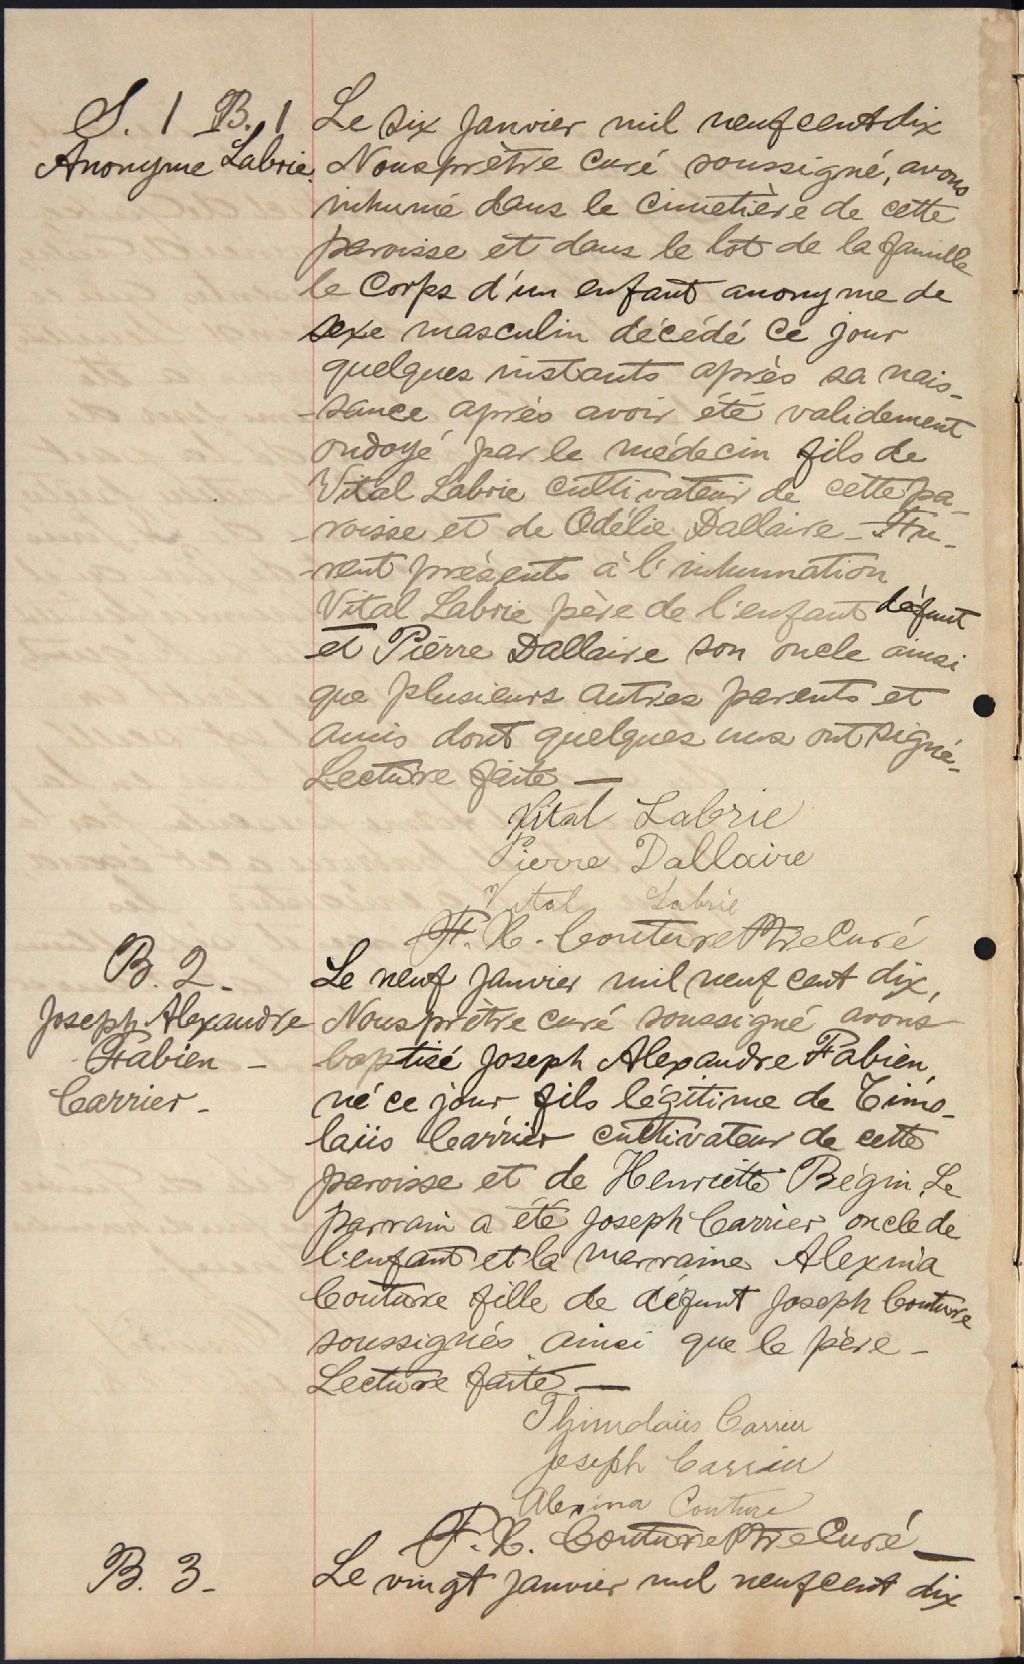 S. 1 B. 1
Anonyme Labrie.
Le six janvier mil neuf cent dix
Nous prêtre curé soussigné, avons
inhumé dans le cimetière de cette
paroisse et dans le lot de la famille
le corps d'un enfant anonyme de
sexe masculin décédé ce jour
quelques instants après sa nais-
-sance après avoir été validement
ondoyé par le médecin fils de
Vital Labrie cultivateur de cette pa-
-roisse et de Odélie Dallaire - Fu-
-rent présents à l'inhumation
Vital Labrie père de l'enfant défunt
et Pierre Dallaire son oncle ainsi
que plusieurs autres parents et
amis dont quelques uns ont signé-
Lecture faite —
Vital Labrie
Pierre Dallaire
Vital Labrie
F. X. Couture Ptre Curé
B. 2 -
Joseph Alexandre
Fabien -
Carrier -
Le neuf janvier mil neuf cent dix,
Nous prêtre curé soussigné avons
baptisé Joseph Alexandre Fabien,
né ce jour fils légitime de Timo-
laüs Carrier cultivateur de cette
paroisse et de Henriette Bégin. Le
parrain a été Joseph Carrier oncle de
l'enfant et la marraine Alexina
Couture fille de défunt Joseph Couture
soussignés ainsi que le père -
Lecture faite —
Thimolaüs Carrier
Joseph Carrier
Alexina Couture
F. X. Couture Ptre Curé —
B. 3 -
Le vingt janvier mil neuf cent dix